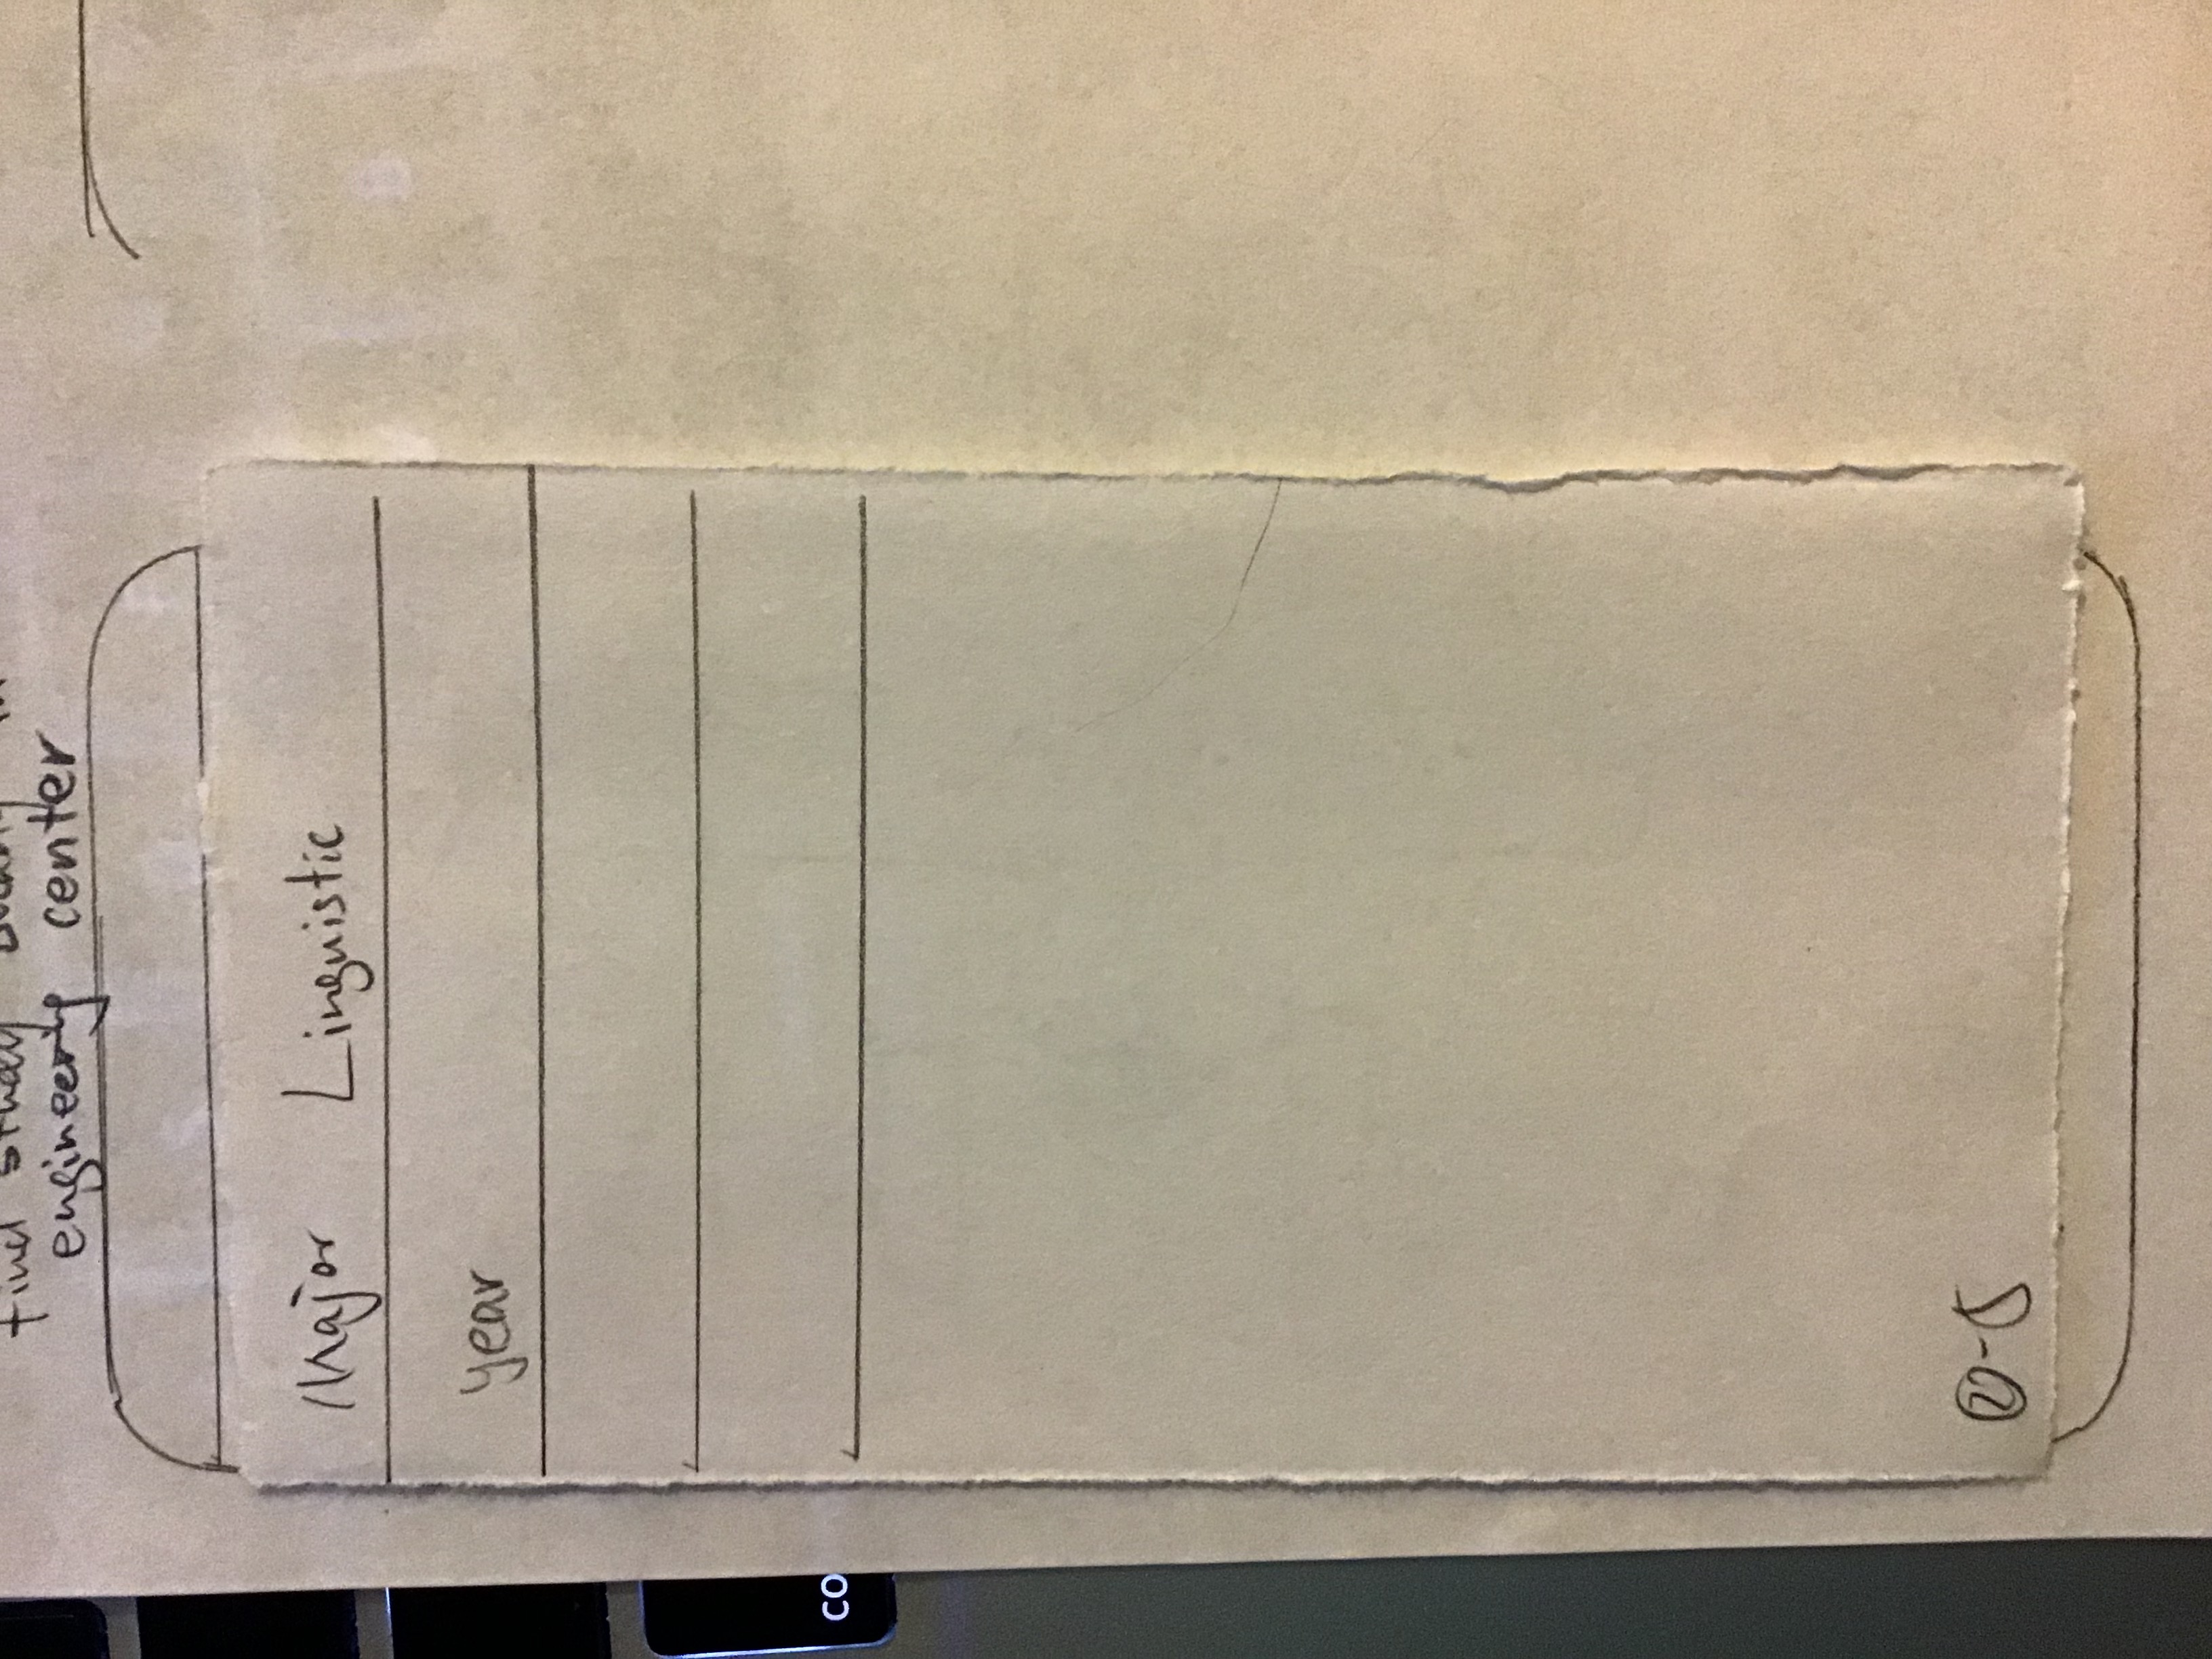 find study buddy in
engineering center
Major Linguistic
year
②-5
co